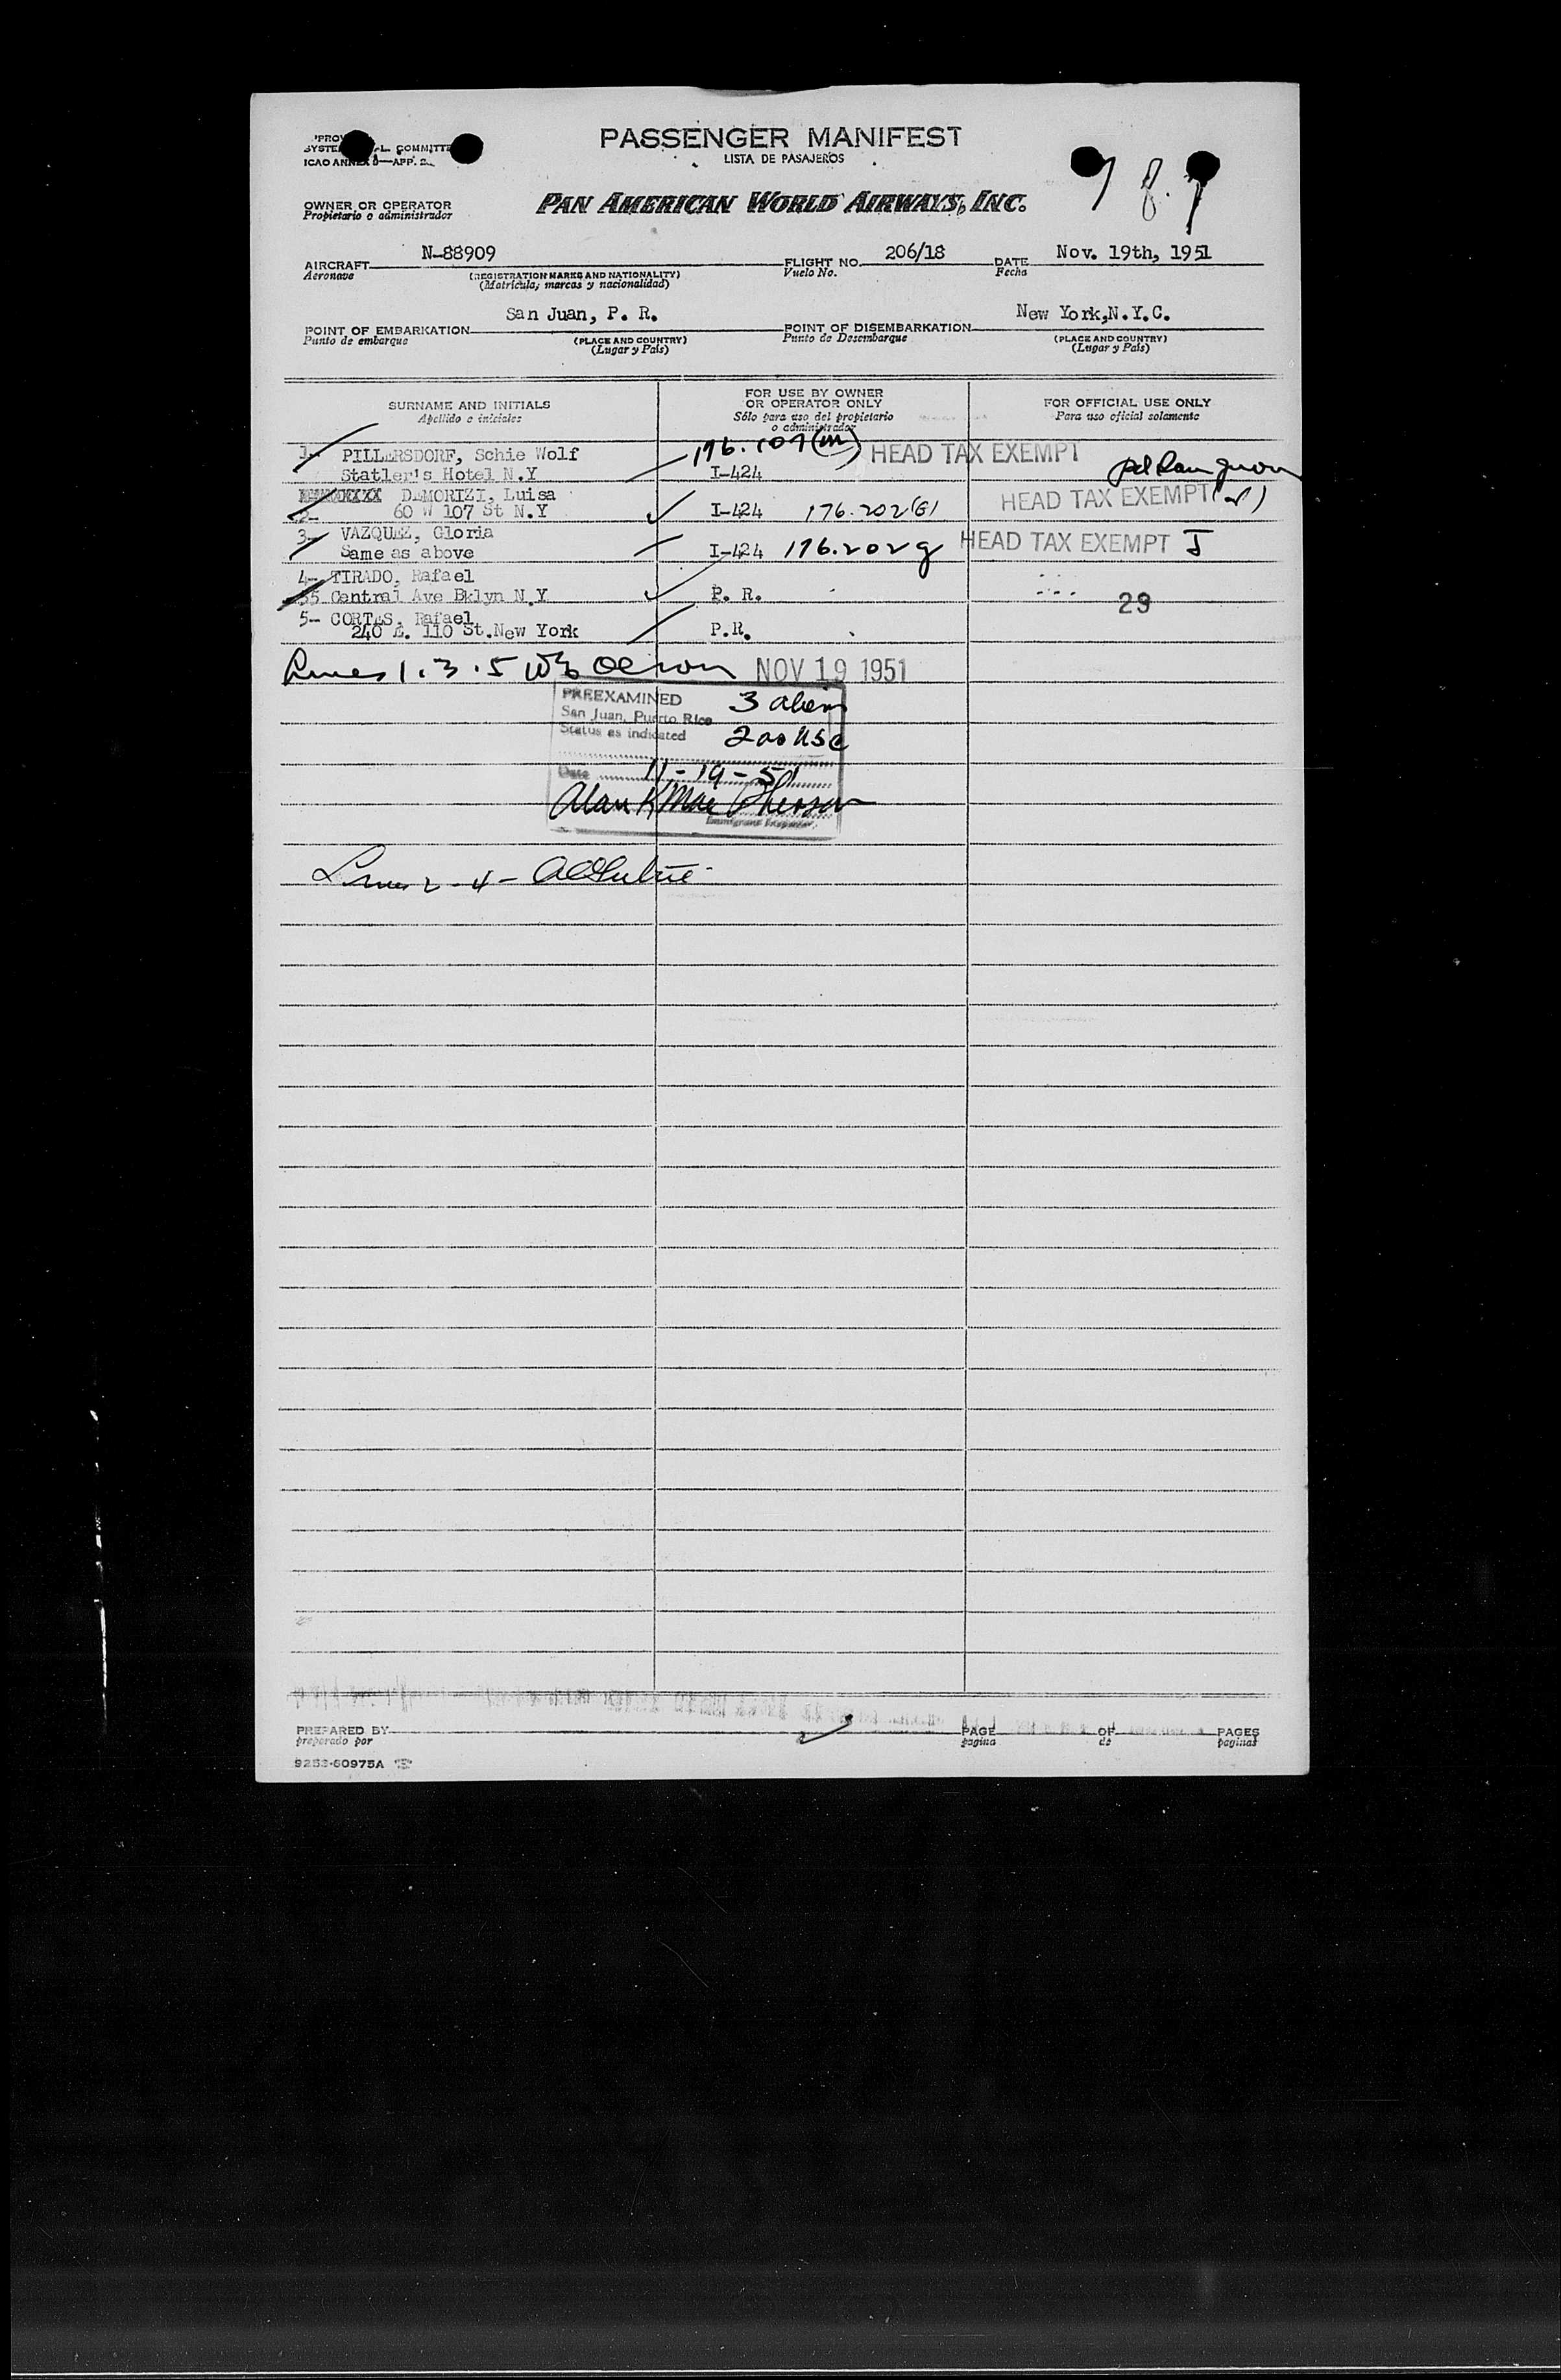 PASSENGER MANIFEST
LISTA DE PASAJEROS
COMMITTE
ICAO ANNEX 9—APP. 2
OWNER OR OPERATOR
Propietario o administrador
PAN AMERICAN WORLD AIRWAYS, INC.
AIRCRAFT N-88909 FLIGHT NO. 206/18 DATE Nov. 19th, 1951
Aeronave (REGISTRATION MARKS AND NATIONALITY) Vuelo No. Fecha
(Matrícula; marcas y nacionalidad)
San Juan, P. R. New York,N.Y.C.
POINT OF EMBARKATION POINT OF DISEMBARKATION
Punto de embarque (PLACE AND COUNTRY) Punto de Desembarque (PLACE AND COUNTRY)
(Lugar y País) (Lugar y País)
SURNAME AND INITIALS
Apellido e iniciales
FOR USE BY OWNER
OR OPERATOR ONLY
Sólo para uso del propietario
o administrador
FOR OFFICIAL USE ONLY
Para uso oficial solamente
1- PILLERSDORF, Schie Wolf 176.107(m) HEAD TAX EXEMPT
Statler's Hotel N.Y I-424
DEMORIZI, Luisa HEAD TAX EXEMPT
2- 60 W 107 St N.Y I-424 176.202(G)
3- VAZQUEZ, Gloria HEAD TAX EXEMPT J
Same as above I-424 176.202g
4- TIRADO, Rafael
35 Central Ave Bklyn N.Y P. R. 29
5- CORTES, Rafael
240 E. 110 St.New York P.R.
Lines 1.3.5 NOV 19 1951
PREEXAMINED 3 aliens
San Juan, Puerto Rico
Status as indicated 2 as USC
Date 11-19-51
Alan K MacPherson
Immigrant Inspector
Lines 2-4-
PREPARED BY PAGE OF PAGES
preparado por pagina de paginas
9253-60975A